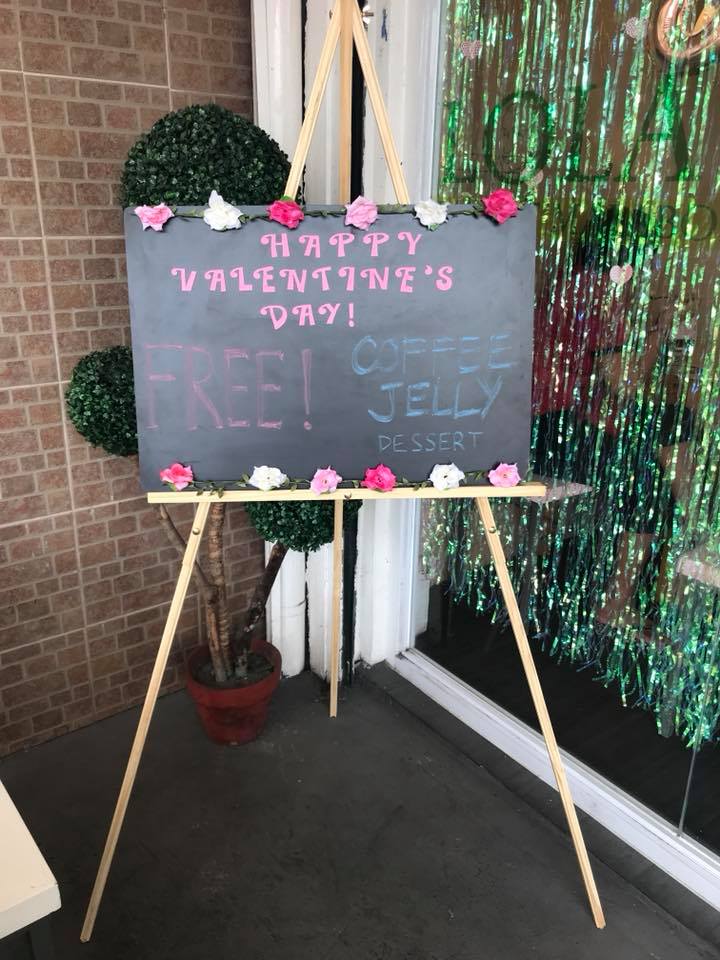 HAPPY
VALENTINE'S
DAY!
FREE!
COFFEE
JELLY
DESSERT
LOLA